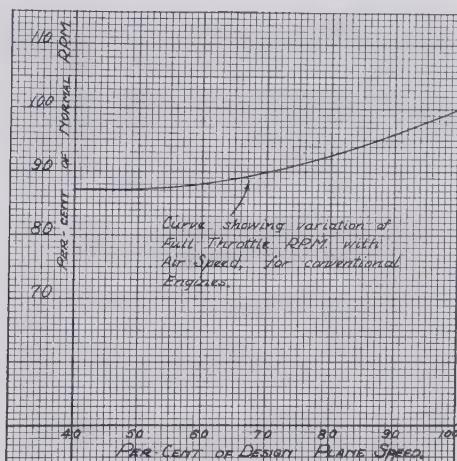 110
100
90
80
70
PER-CENT OF NORMAL RPM.
Curve showing variation of
Full Throttle RPM. with
Air Speed, for conventional
Engines.
40 50 60 70 80 90 100
PER-CENT OF DESIGN PLANE SPEED.